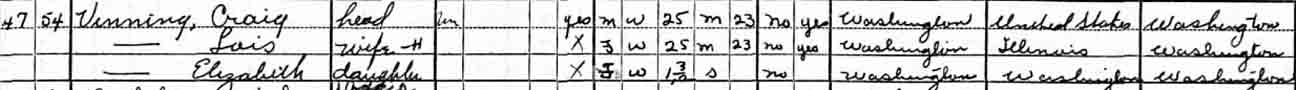 47 54 Vinning, Craig head yes m w 25 m 23 no yes Washington United States Washington
— Lois wife-H X F w 25 m 23 no yes Washington Illinois Washington
— Elizabeth daughter X F w 1 3/12 s no Washington Washington Washington